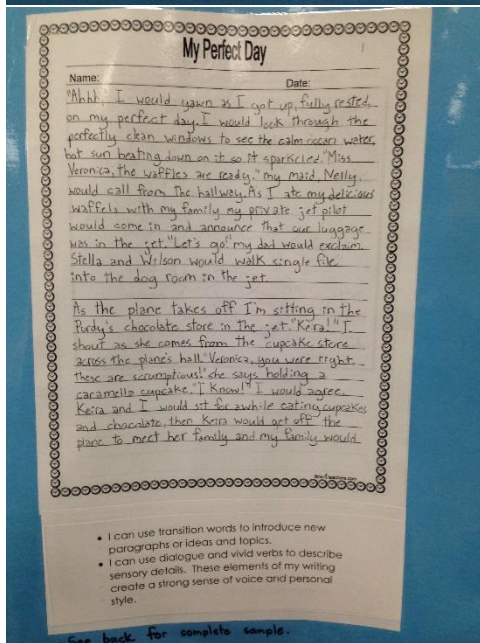 My Perfect Day
Name: Date:
"Ahhh, I would yawn as I got up, fully rested,
on my perfect day. I would look through the
perfectly clean windows to see the calm ocean water,
hot sun beating down on it so it sparkeled. "Miss
Veronica, the waffles are ready." my maid, Nelly,
would call from the hallway. As I ate my delicious
waffels with my family my private jet pilot
would come in and announce that our luggage
was in the jet. "Let's go!" my dad would exclaim.
Stella and Wilson would walk single file
into the dog room in the jet.
As the plane takes off I'm sitting in the
Purdy's chocolate store in the jet. "Keira!" I
shout as she comes from the cupcake store
across the plane's hall. "Veronica, you were right,
these are scrumptious!" she says holding a
caramello cupcake. "I Know!" I would agree.
Keira and I would sit for awhile eating cupcakes
and chocolate, then Keira would get off the
plane to meet her family and my family would
• I can use transition words to introduce new
paragraphs or ideas and topics.
• I can use dialogue and vivid verbs to describe
sensory details. These elements of my writing
create a strong sense of voice and personal
style.
See back for complete sample.